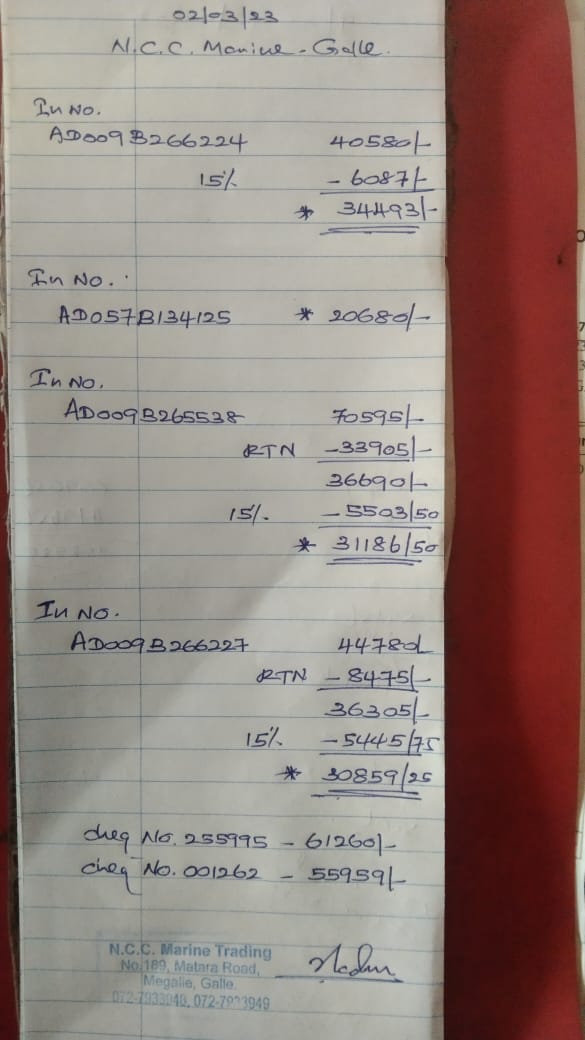 02/03/23
N.C.C. Marine - Galle.
In No.
AD009B266224 40580/-
15% - 6087/-
* 34493/-
In No.
AD057B134125 * 20680/-
In No.
AD009B265538 70595/-
RTN -33905/-
36690/-
15%. - 5503/50
* 31186/50
In No.
AD009B266227 44780/-
RTN - 8475/-
36305/-
15%. -5445/75
* 30859/25
cheq No. 255995 - 61260/-
cheq No. 001262 - 55959/-
N.C.C. Marine Trading
No.189, Matara Road,
Megalle, Galle.